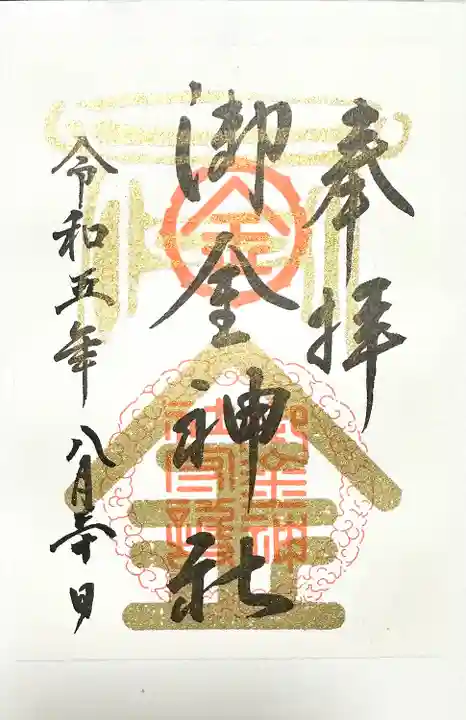 奉拝
御金神社
令和五年 八月三十日
金